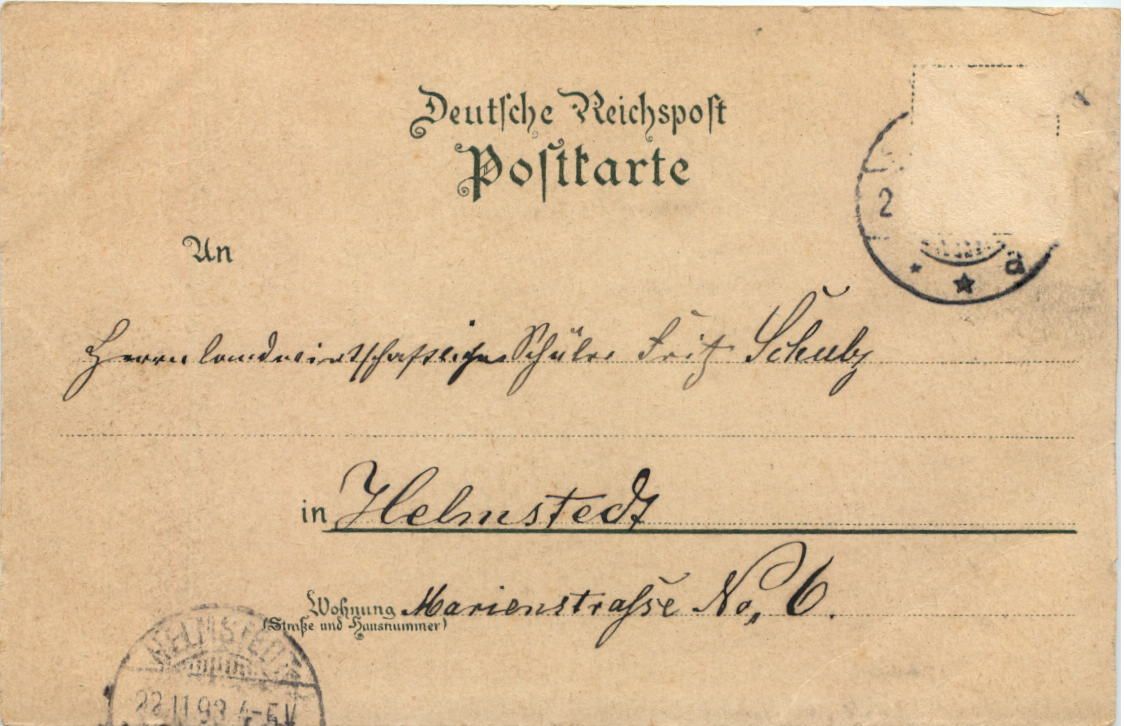 Deutsche Reichspost
Postkarte
2
a
An
Herrn landwirtschaftlichen Schüler Fritz Schulz
in Helmstedt
Wohnung Marienstrasse No. 6.
(Straße und Hausnummer)
HELMSTEDT
22 11 98 4-5 V